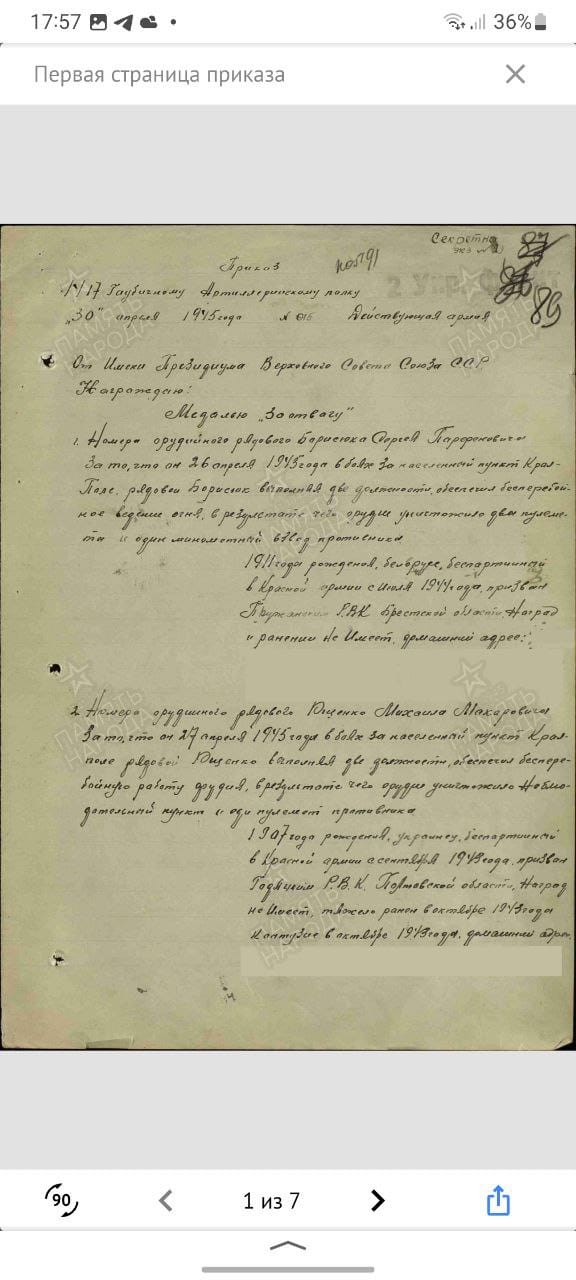 17:57
36%
Первая страница приказа
Секретно
экз №
89
Приказ
1417 Гаубичному Артиллерийскому полку
„30" апреля 1945 года № 016 Действующая армия
От Имени Президиума Верховного Совета Союза ССР
Награждаю:
Медалью „За отвагу"
1. Номера орудийного рядового Борисюка Сергея Парфеновича
За то, что он 26 апреля 1945 года в боях за населенный пункт Крам-
Поле, рядовой Борисюк выполняя две должности, обеспечил бесперебой-
ное ведение огня, в результате чего орудие уничтожило два пулеме-
та и один минометный взвод противника
1911 года рождения, белорус, беспартийный
в Красной армии с июля 1944 года, призван
Пружанским Р.В.К. Брестской области, Наград
и ранений не Имеет, домашний адрес:
2. Номера орудийного рядового Ющенко Михаила Макаровича
За то, что он 27 апреля 1945 года в боях за населенный пункт Крам-
поле рядовой Ющенко выполняя две должности, обеспечил беспере-
бойную работу орудия, в результате чего орудие уничтожило Наблю-
дательный пункт и оди пулемет противника
1907 года рождения, украинец, беспартийный
в Красной армии с сентября 1943 года, призван
Р.В.К. Полтавской области, Наград
не Имеет, тяжело ранен в октябре 1943 года
в октябре 1943 года, домашний адрес
ПАМЯТЬ НАРОДА
90
1 из 7